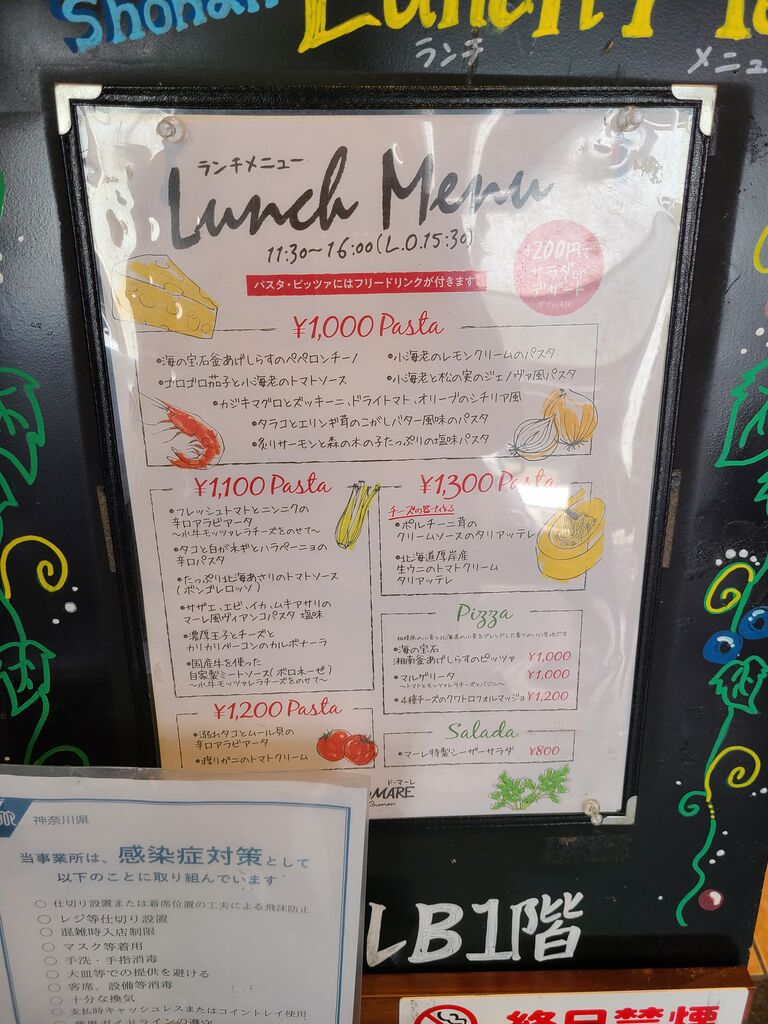 Shonan
Lunch
ランチ
メニュ
ランチメニュー
Lunch Menu
11:30~16:00(L.O.15:30)
+200円で
サラダor
デザート
パスタ・ピッツァにはフリードリンクが付きます
¥1,000 Pasta
•海の宝石釜あげしらすのペペロンチーノ
•小海老のレモンクリームのパスタ
•ゴロゴロ茄子と小海老のトマトソース
•小海老と松の実のジェノヴァ風パスタ
•カジキマグロとズッキーニ、ドライトマト、オリーブのシチリア風
•タラコとエリンギ茸のこがしバター風味のパスタ
•炙りサーモンと森の木の子たっぷりの塩味パスタ
¥1,100 Pasta
•フレッシュトマトとニンニクの
辛口アラビアータ
~水牛モッツァレラチーズをのせて~
•タコと白がネギとハラペーニョの
辛口パスタ
•たっぷり北海あさりのトマトソース
(ボンゴレロッソ)
•サザエ、エビ、イカ、ムキアサリの
マーレ風ヴィアンコパスタ 塩味
•濃厚玉子とチーズと
カリカリベーコンのカルボナーラ
•国産牛を使った
自家製ミートソース(ボロネーゼ)
~水牛モッツァレラチーズをのせて~
¥1,300 Pasta
チーズの器で作る
•ポルチーニ茸の
クリームソースのタリアッテレ
•北海道厚岸産
生ウニのトマトクリーム
タリアッテレ
Pizza
相模原の小麦と北海道の小麦をブレンドした香りのいい生地です
•海の宝石
湘南釜あげしらすのピッツァ ¥1,000
•マルゲリータ ¥1,000
~トマトとモッツァレラチーズとバジル~
•4種チーズのクワトロフォルマッジョ ¥1,200
¥1,200 Pasta
•溺れタコとムール貝の
辛口アラビアータ
•渡りガニのトマトクリーム
Salada
•マーレ特製シーザーサラダ ¥800
ド・マーレ
MARE
Shonan
神奈川県
当事業所は、感染症対策として
以下のことに取り組んでいます
○ 仕切り設置または着席位置の工夫による飛沫防止
○ レジ等仕切り設置
○ 混雑時入店制限
○ マスク等着用
○ 手洗・手指消毒
○ 大皿等での提供を避ける
○ 客席、設備等消毒
○ 十分な換気
○ 支払時キャッシュレスまたはコイントレイ使用
○ 業界ガイドラインの遵守
LB1階
終日禁煙